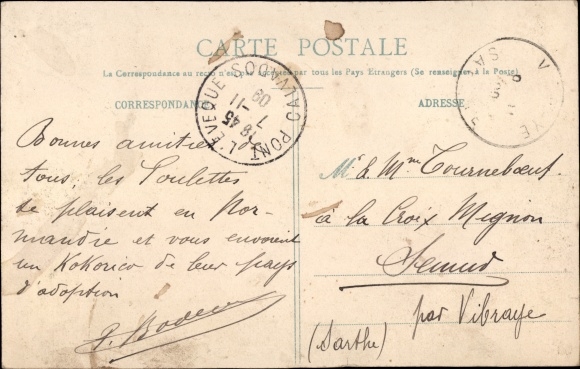 CARTE POSTALE
La Correspondance au recto n'est pas acceptée par tous les Pays Etrangers (Se renseigner à la Poste)
CORRESPONDANCE
ADRESSE
PONT L'EVEQUE CALVADOS
18 45
7 -11
09
Bonnes amitiés de
tous, les Poulettes
se plaisent en Nor-
mandie et vous envoient
un Kokorico de leur pays
d'adoption
P. Bodeu
Mr & Mme Tourneboeuf
à la Croix Mignon
Semur
par Vibraye
(Sarthe)